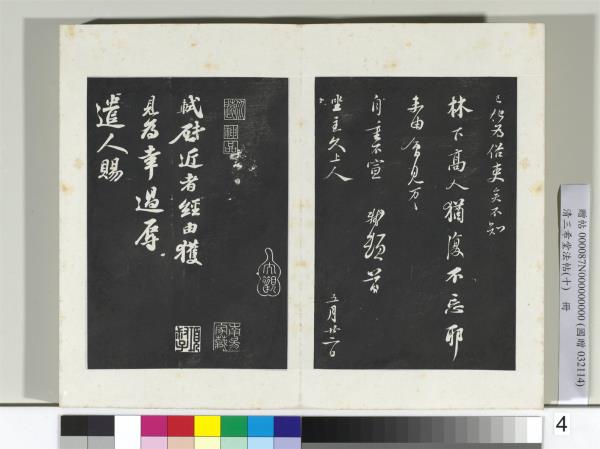 已化為俗吏矣不知
林下高人猶復不忘耶
未由會見萬萬
自重不宣 軾頓首
坐主久上人 五月廿二日
軾啟近者經由獲
見為幸過辱
遣人賜
贈帖 000087N000000000 (國贈 032114)
清三希堂法帖(十) 冊
4